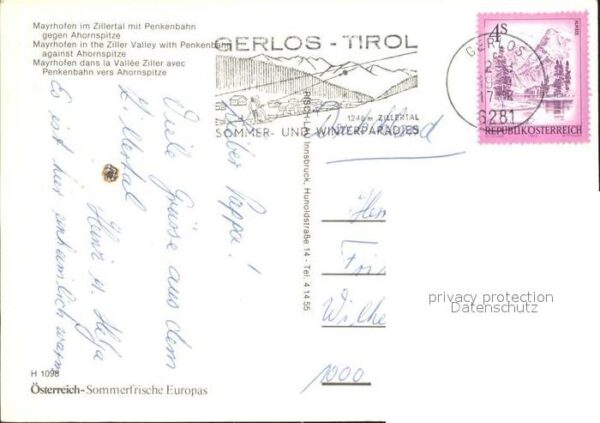 Mayrhofen im Zillertal mit Penkenbahn
gegen Ahornspitze
Mayrhofen in the Ziller Valley with Penkenbahn
against Ahornspitze
Mayrhofen dans la Vallée Ziller avec
Penkenbahn vers Ahornspitze
GERLOS - TIROL
1246 m ZILLERTAL
SOMMER- UND WINTERPARADIES
GERLOS
6281
4S
REPUBLIK ÖSTERREICH
Lieber Pappa!
Viele Grüsse aus dem
Zillertal
Heinz u. Helga
Es ist hier unheimlich warm
Innsbruck, Hunoldstraße 14 - Tel. 4 14 55
Deutschland
Wilhe
1000
privacy protection
Datenschutz
H 1098
Österreich-Sommerfrische Europas